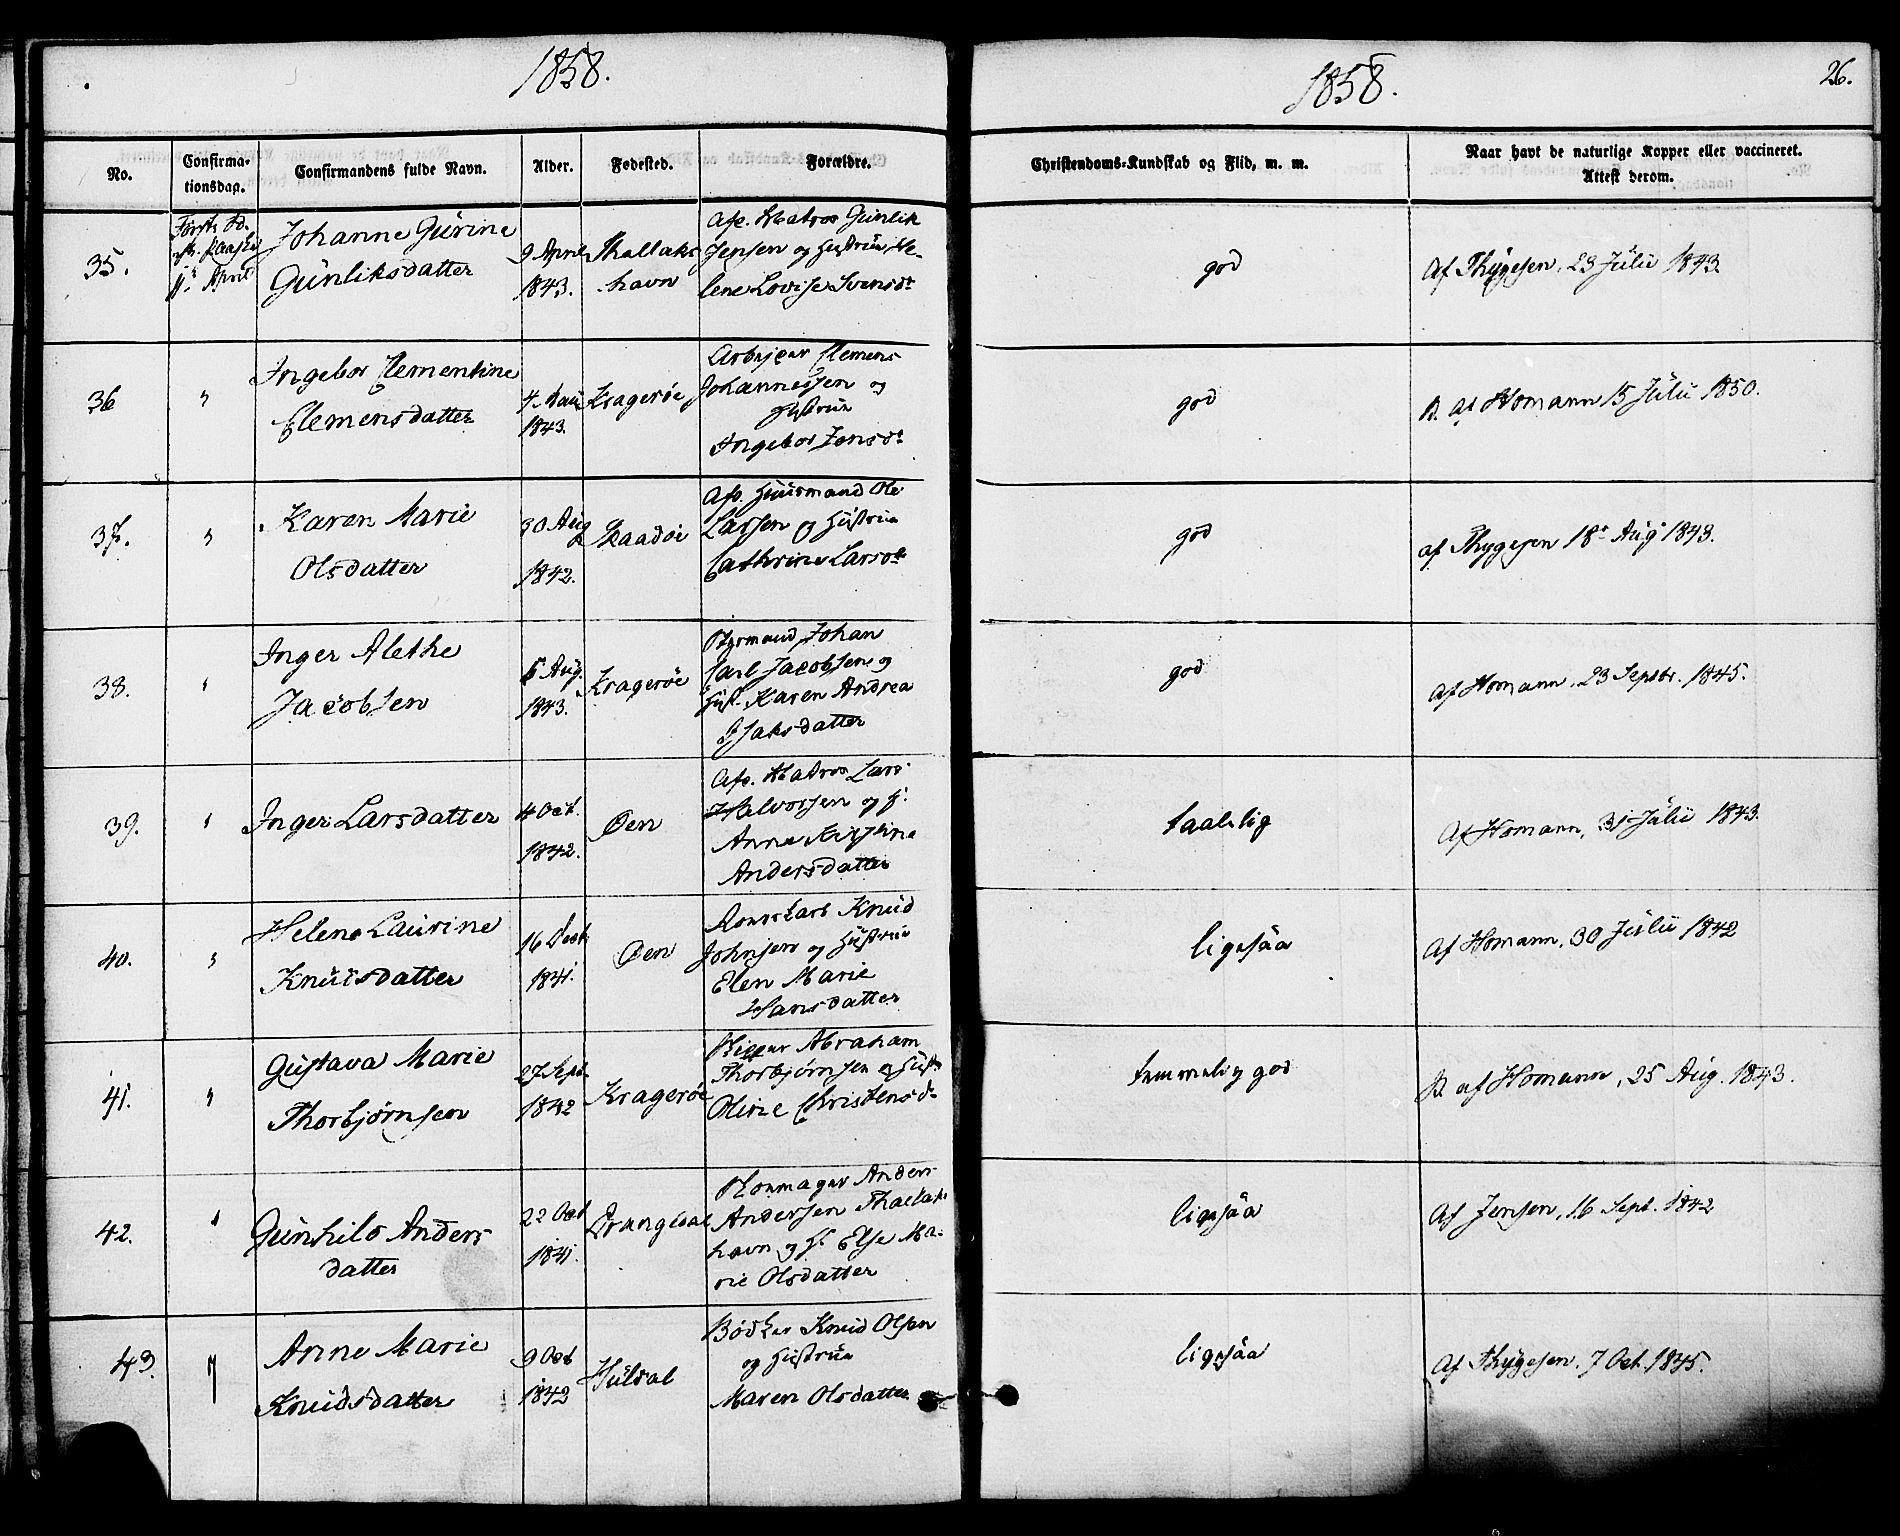 1858.
1858.
26.
No.
Confirma-
tionsdag.
Confirmandens fulde Navn.
Alder.
Fødested.
Forældre.
Christendoms-Kundskab og Flid, m. m.
Naar havt de naturlige Kopper eller vaccineret.
Attest derom.
35.
Første S.
eft. Paaske
11te April
Johanne Gurine
Gunliksdatter
9 April
1843.
Thallaks
havn
Afs. Matros Gunlik
Jensen og Hustrue He-
lene Lovise Svensdt
god
Af Thygesen, 23 Julii 1843.
36
"
Ingebor Clementine
Clemensdatter
4. Maii
1843.
Kragerøe
Arbejder Clemens
Johannessen og
Hustrue
Ingebor Jensdt
god
R. af Homann 15 Julii 1850.
37.
"
Karen Marie
Olsdatter
30 Aug
1842.
Skaadøe
Afs. Huusmand Ole
Larsen og Hustrue
Cathrine Larsdt
god
af Thygesen 18de Aug 1843.
38.
"
Inger Alethe
Jacobsen
5 Aug.
1843.
Kragerøe
Styrmand Johan
Carl Jacobsen og
Hust. Karen Andrea
Isaksdatter
god
af Homann, 23 Septbr. 1845.
39.
"
Inger Larsdatter
4 Oct.
1842.
Øen
Afs. Matros Lars
Halvorsen og H.
Anne Kirstine
Andersdatter
taalelig
Af Homann, 31 Julii 1843.
40.
"
Helene Laurine
Knudsdatter
16 Decb
1841.
Øen
Knud
Johnsen og Hustrue
Elen Marie
Hansdatter
ligesaa
Af Homann, 30 Julii 1842
41.
"
Gustava Marie
Thorbjørnsen
27 Sept.
1842
Kragerøe
Skipper Abraham
Thorbjørnsen og Hust.
Oline Christensd.
temmelig god
R. af Homann, 25 Aug. 1843.
42.
"
Gunhild Anders
datter
22 Oct
1841.
Drangedal
Skomager Anders
Andersen Thallaks
havn og H. Else Ma-
rie Olsdatter
ligesaa
Af Jensen, 16 Sept. 1842
43.
"
Anne Marie
Knudsdatter
9 Oct
1842
Huldal
Bødker Knud Olsen
og Hustrue
Maren Olsdatter
ligesaa
Af Thygesen, 7 Oct. 1845.